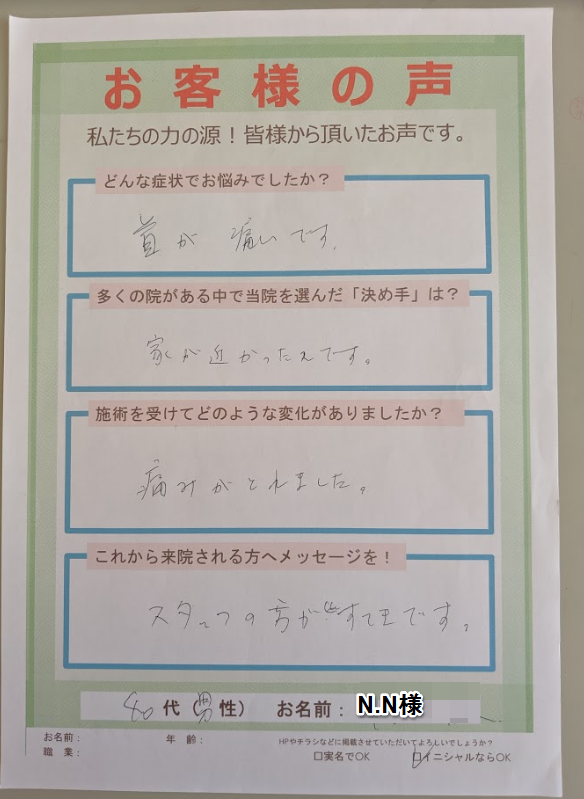 お客様の声
私たちの力の源！皆様から頂いたお声です。
どんな症状でお悩みでしたか？
首が 痛いです.
多くの院がある中で当院を選んだ「決め手」は？
家が近かったんです。
施術を受けてどのような変化がありましたか？
痛みがとれました。
これから来院される方へメッセージを！
スタッフの方がすてきです。
代（男性） お名前：N.N様
お名前： 年 齢： HPやチラシなどに掲載させていただいてよろしいでしょうか？
職 業： □実名でOK ☑イニシャルならOK